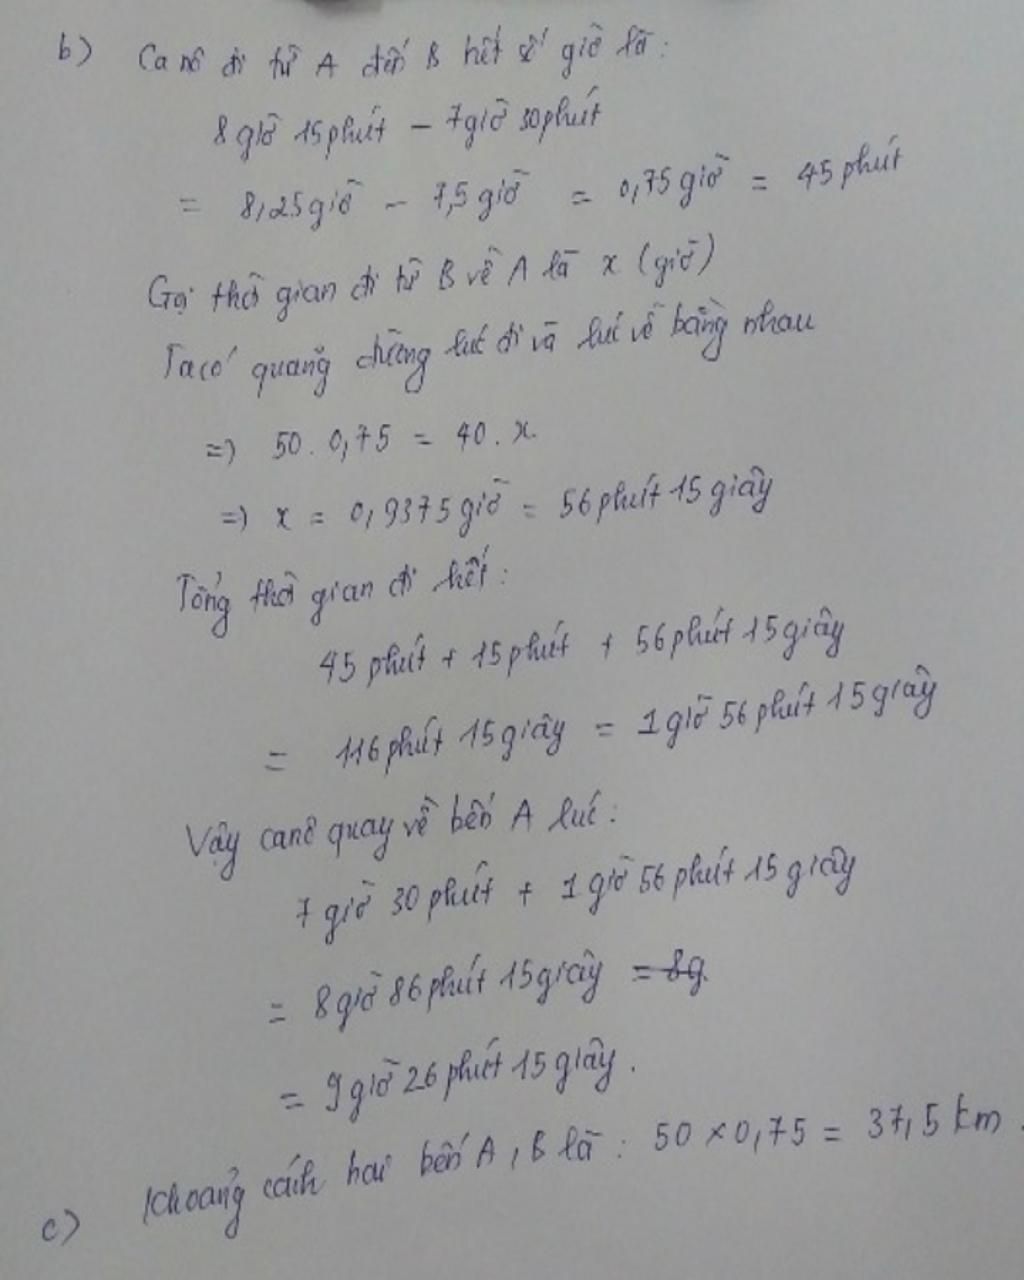 b) Ca nô đi từ A đến B hết số giờ là:
8 giờ 15 phút - 7 giờ 30 phút
= 8,25 giờ - 7,5 giờ = 0,75 giờ = 45 phút
Gọi thời gian đi từ B về A là x (giờ)
Ta có quãng đường lúc đi và lúc về bằng nhau
=> 50 . 0,75 = 40 . x.
=> x = 0,9375 giờ = 56 phút 15 giây
Tổng thời gian đi hết:
45 phút + 15 phút + 56 phút 15 giây
= 116 phút 15 giây = 1 giờ 56 phút 15 giây
Vậy canô quay về bến A lúc:
7 giờ 30 phút + 1 giờ 56 phút 15 giây
= 8 giờ 86 phút 15 giây = 8g
= 9 giờ 26 phút 15 giây.
c) Khoảng cách hai bến A, B là: 50 × 0,75 = 37,5 km.